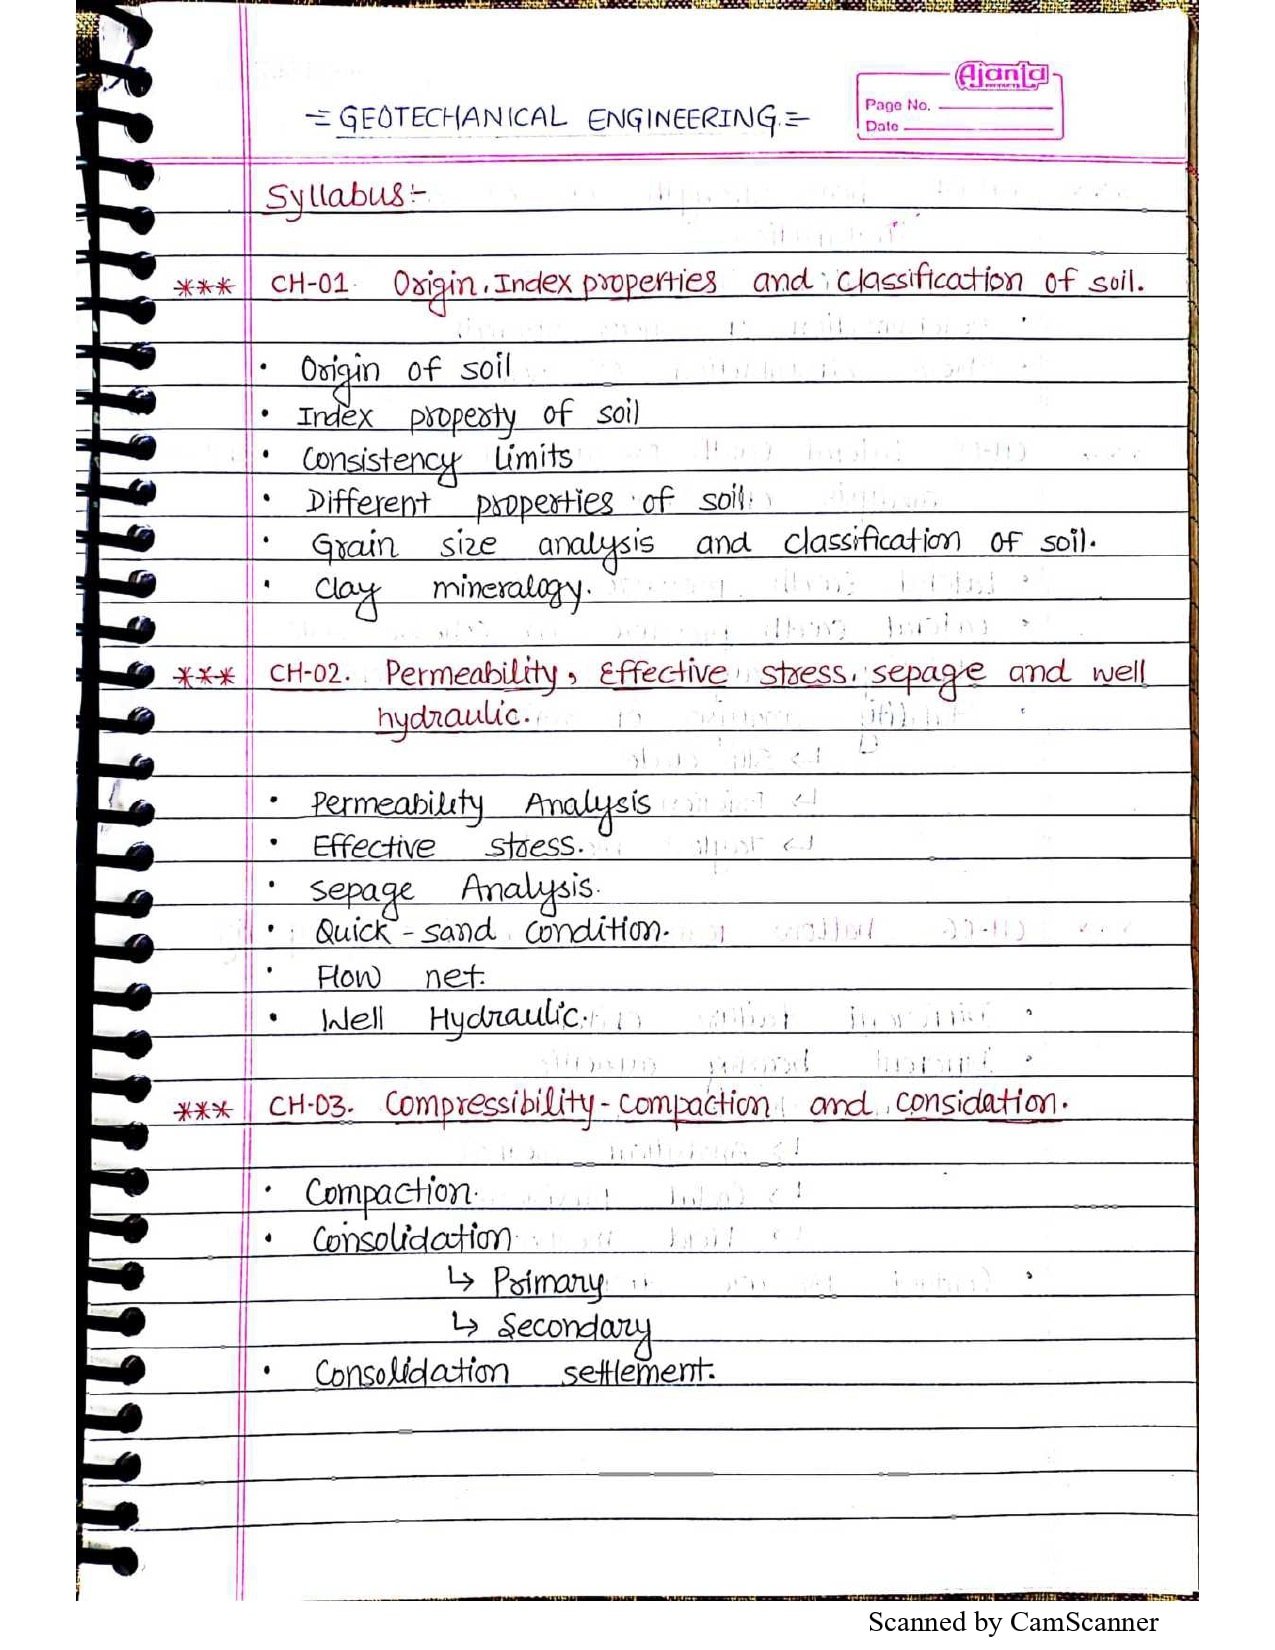 = GEOTECHANICAL ENGINEERING. =
Ajanta
Page No.
Date
Syllabus:-
*** CH-01. Origin, Index properties and classification of soil.
• Origin of soil
• Index property of soil
• Consistency Limits
• Different properties of soil.
• Grain size analysis and classification of soil.
• Clay mineralogy.
*** CH-02. Permeability, Effective stress, sepage and well
hydraulic.
• Permeability Analysis
• Effective stress.
• Sepage Analysis.
• Quick-sand condition.
• Flow net.
• Well Hydraulic.
*** CH-03. Compressibility-compaction and considation.
• Compaction.
• Consolidation
↳ Primary
↳ Secondary
• Consolidation settlement.
Scanned by CamScanner